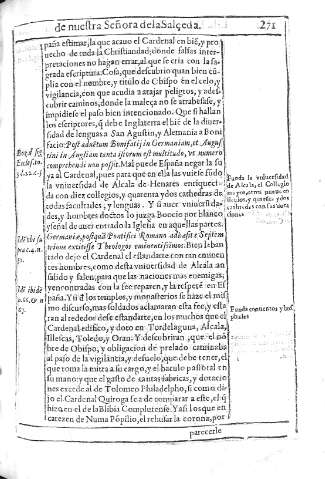 de nuestra Señora de la Salçeda. 271
paña estimar, la que acauo el Cardenal en biẽ, y pro
uecho de toda la Christiandad; donde falsas inter-
pretaciones no hagan errar, al que se cria con la sa-
grada escriptura. Cosa, que descubrio quan bien cũ-
plia con el nombre, y titulo de Obispo en el celo, y
vigilancia, con que acudia a atajar peligros, y des-
cubrir caminos, donde la maleça no se atrabesase, y
impidiese el paso bien intencionado. Que si hallan
los escriptores, q̃ debe Inglaterra el biẽ de la diuer-
sidad de lenguas a San Agustin, y Alemania a Boni
facio: Post aduentum Bonifatij in Germaniam, et Augus
tini in Angliam tanta istorum est multitudo, vt numero
comprehendi non possit. Mal puede España negar la su
ya al Cardenal, pues para que en ella las vuiese fũdo
la vniuersidad de Alcala de Henares enriqueçida
con diez collegios, y quarenta y dos cathedras de
todas facultades, y lenguas. Y si auer vniuersida-
des, y hombres doctos lo juzga Boocio por blanco
y señal de auer entrado la Iglesia en aquellas partes.
Germaniæ, postquã Pontifice Romano adhæsit Septem
trione extitisse Theologos eminentisimos. Bien leban
tado dejo el Cardenal el estandarte con tan eminen
tes hombres, como desta vniuersidad de Alcala an
salido y salen, para que las naciones mas enemigas,
yencontradas con la fee reparen, y la respetẽ en Es
paña. Y si d̃ los templos, y monasterios se haze el mis
mo discurso, mas soldados aclamaran esta fee, y esta
ran al rededor dese estandarte, en los muchos que el
Cardenal edifico, y doto en Tordelaguna, Alcala,
Illescas, Toledo, y Oran: Y descubriran, que el nõ
bre de Obispo, y obligacion de prelado caminaba
al paso de la vigilancia, y desuelo, que debe tener, el
que toma la mitra a su cargo, y el baculo pastoral en
su mano: y que el gasto de tantas fabricas, y dotacio
nes excede al de Tolomeo Philadelpho, si como di-
jo el Cardenal Quiroga se a de comparar a este, el q̃
hizo en el de la Biblia Complutense. Y a si los que en
carezen de Numa Põpilio, el rehusar la corona, por
parecerle
Funda la vniuersidad
de Alcala, el Collegio
Funda conuentos y hos
pitales